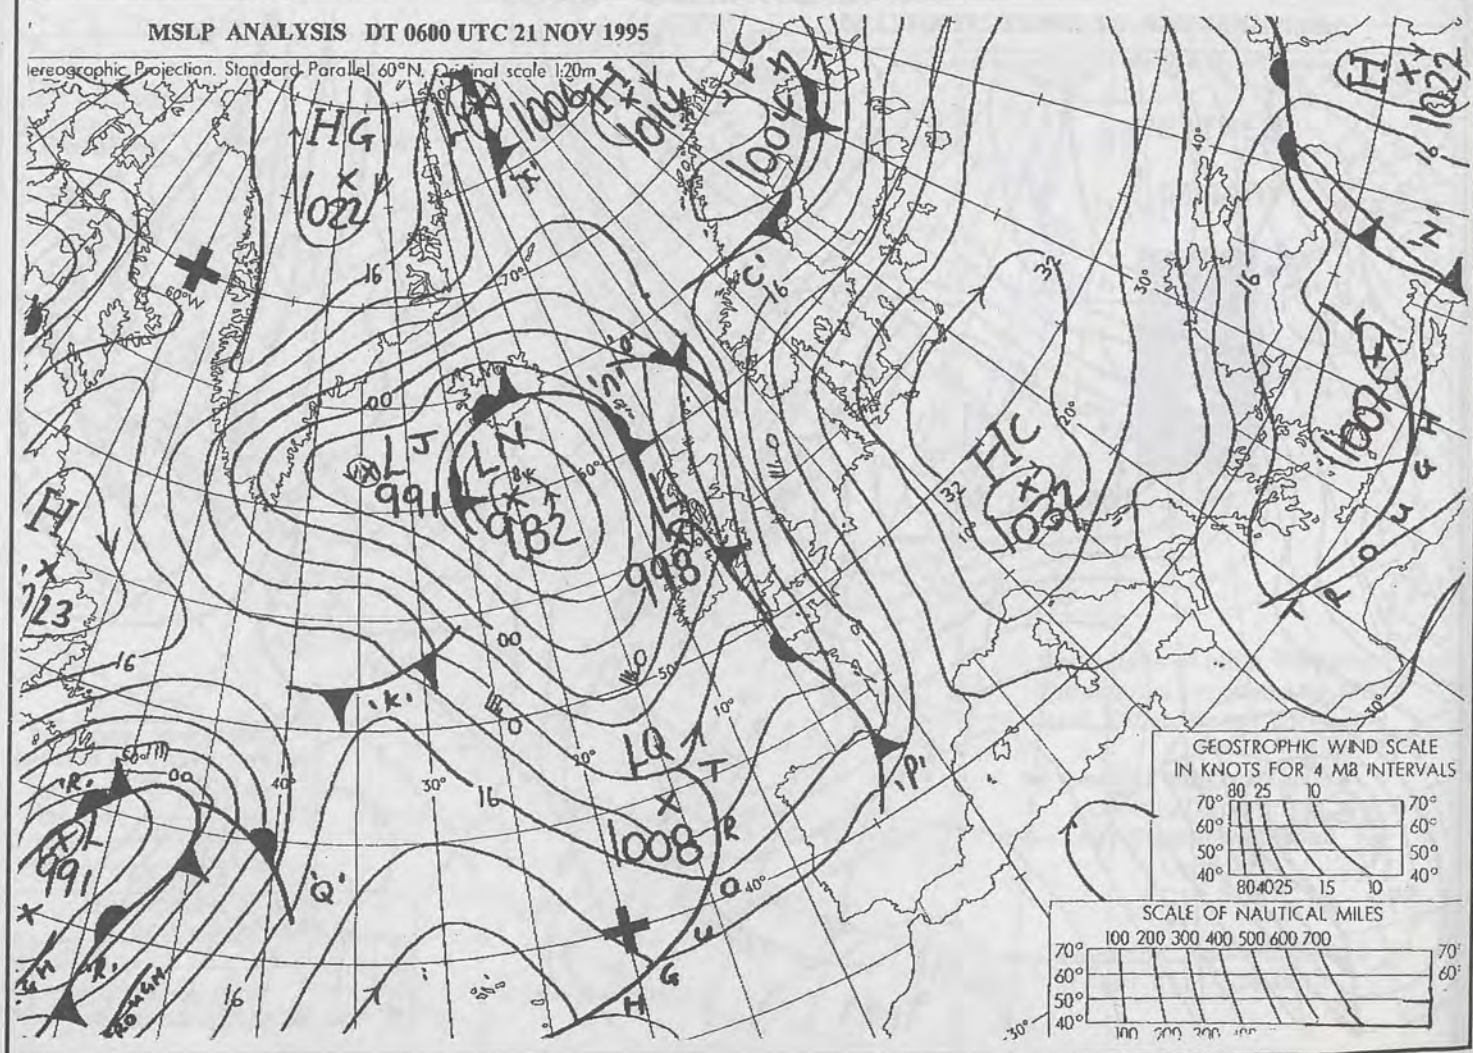 MSLP ANALYSIS DT 0600 UTC 21 NOV 1995
ereographic Projection. Standard Parallel 60°N. Original scale 1:20m
HG
1022
16
1006
H
1014
LC
1004
H
1022
16
'N'
'C'
16
32
40°
30°
20°
16
L
1007
60°W
70°
16
'O'
'n'
00
LJ
991
LN
982
60°
998
HC
1037
32
10°
TROUGH
H
16
00
'K'
50°
10°
20°
30°
40°
16
LQ
1008
TROUGH
40°
'P'
0°
'R'
00
L
991
'Q'
'R'
16
30°
GEOSTROPHIC WIND SCALE
IN KNOTS FOR 4 MB INTERVALS
80 25 10
70° 70°
60° 60°
50° 50°
40° 40°
80 40 25 15 10
SCALE OF NAUTICAL MILES
100 200 300 400 500 600 700
70° 70°
60° 60°
50°
40°
100 200 300 400
-30°